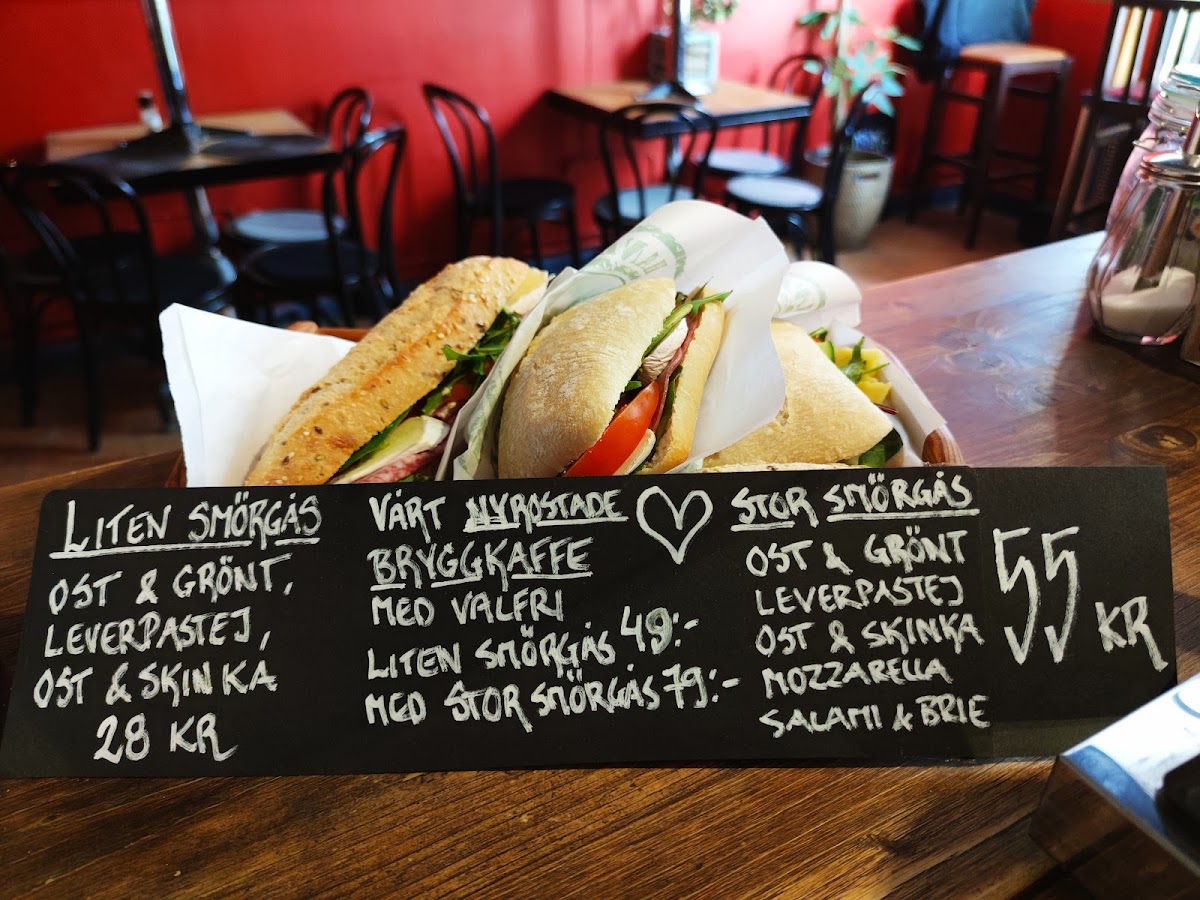 LITEN SMÖRGÅS
OST & GRÖNT,
LEVERPASTEJ,
OST & SKINKA
28 KR
VÅRT NYROSTADE
BRYGGKAFFE
MED VALFRI
LITEN SMÖRGÅS 49:-
MED STOR SMÖRGÅS 79:-
STOR SMÖRGÅS
OST & GRÖNT
LEVERPASTEJ
OST & SKINKA
MOZZARELLA
SALAMI & BRIE
55 KR